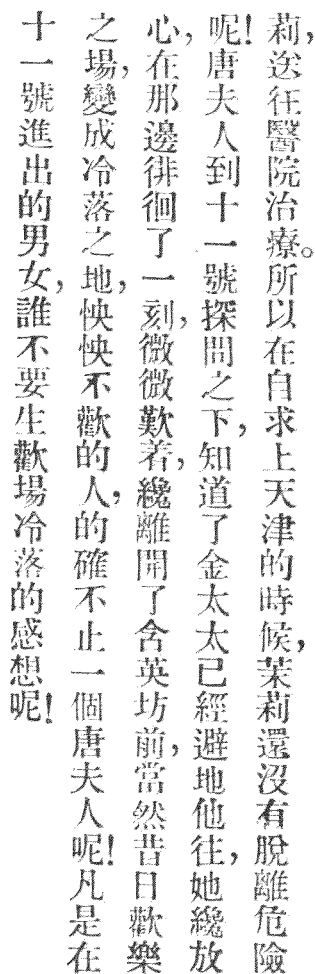 莉，送往醫院治療。所以在自求上天津的時候，茉莉還沒有脫離危險
呢！唐夫人到十一號探問之下，知道了金太太已經避地他往，她纔放
心，在那邊徘徊了一刻，微微歎若，纔離開了含英坊前，當然昔日歡樂
之場，變成冷落之地，怏怏不歡的人，的確不止一個唐夫人呢！凡是在
十一號進出的男女，誰不要生歡場冷落的感想呢！